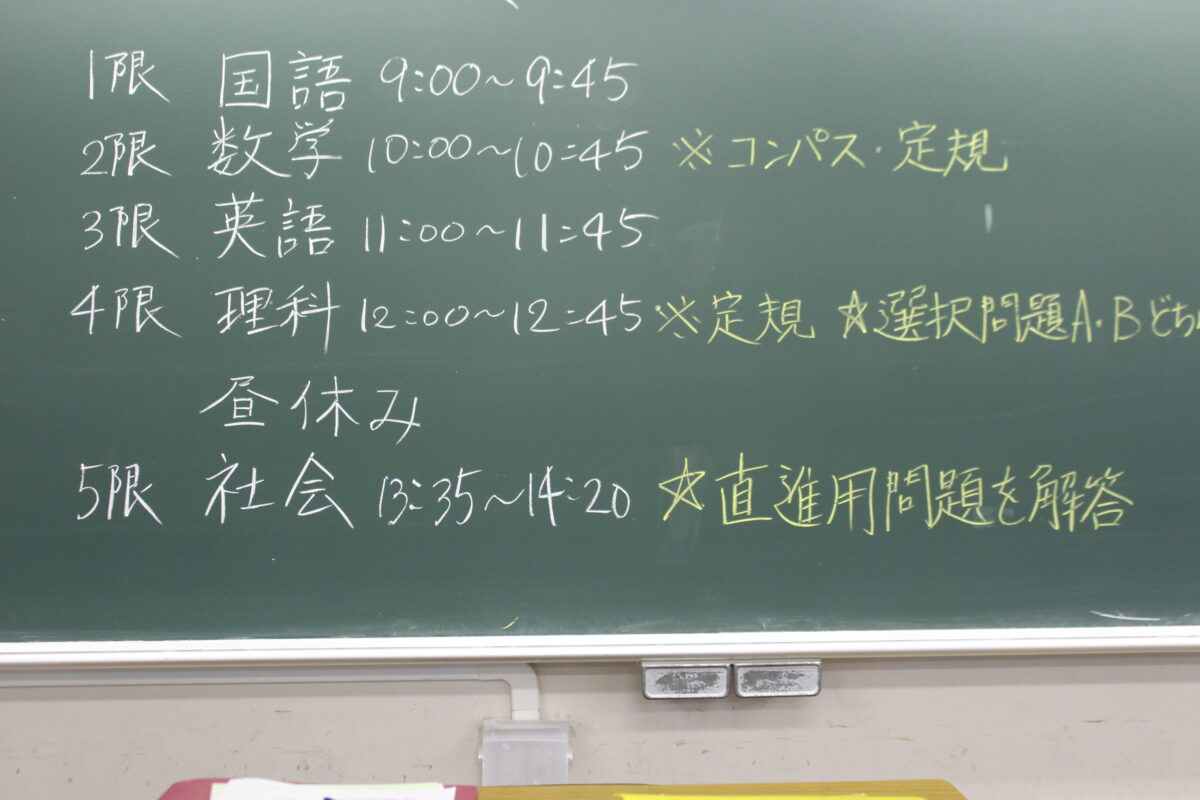 1限 国語 9:00~9:45
2限 数学 10:00~10:45 ※コンパス・定規
3限 英語 11:00~11:45
4限 理科 12:00~12:45 ※定規 ☆選択問題A・Bどち
昼休み
5限 社会 13:35~14:20 ☆直進用問題を解答